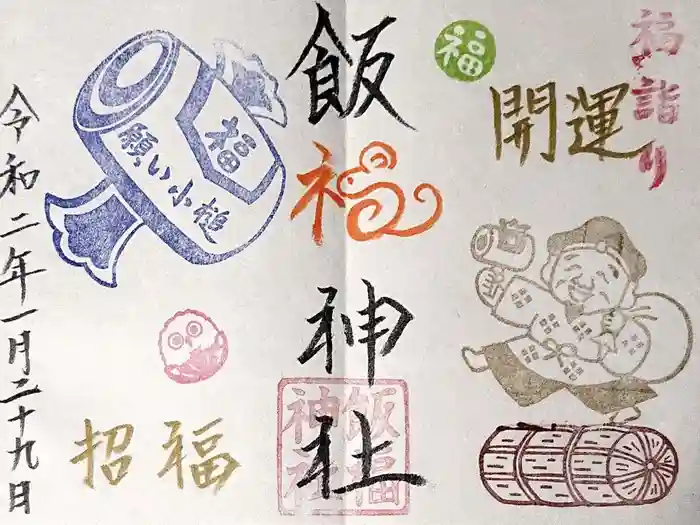 福詣り
開運
福
飯福神社
飯福
神社
福
願い小槌
招福
令和二年一月二十九日